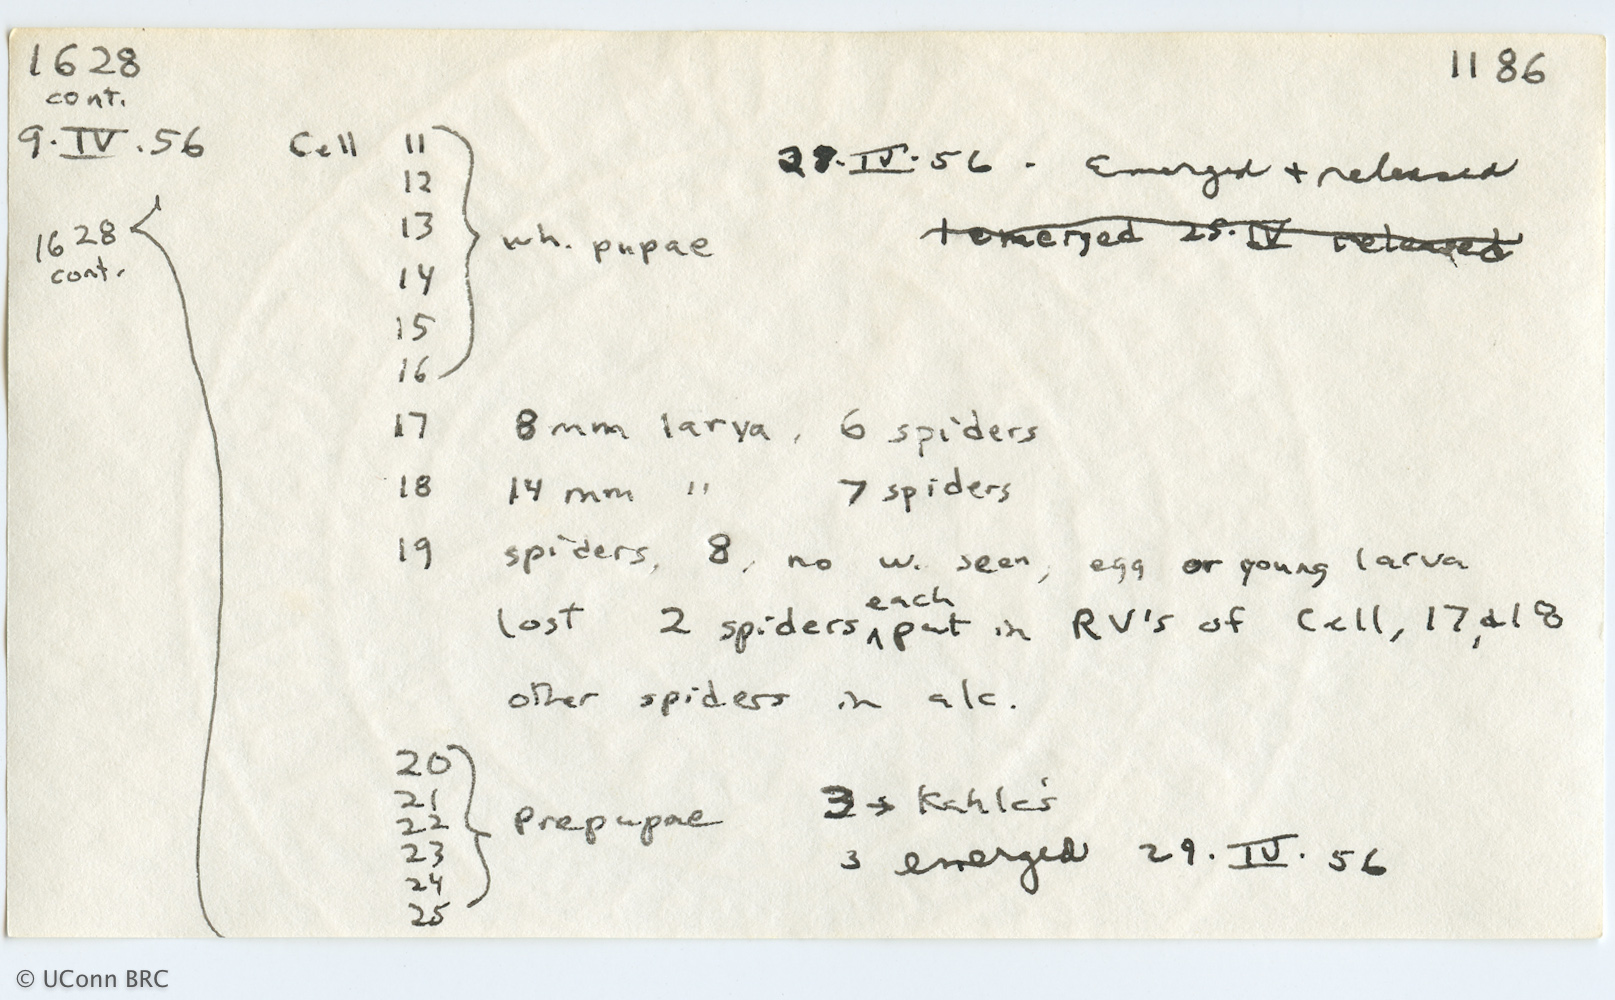 1628 1186
cont.
9.IV.56 Cell 11 28.IV.56 - Emerged + released
12
1628 13 wh. pupae 1 emerged 25.IV released
cont.
14
15
16
17 8 mm larva, 6 spiders
18 14 mm " 7 spiders
19 spiders, 8, no w. seen, egg or young larva
lost 2 spiders each put in RV's of Cell, 17, & 18
other spiders in alc.
20
21 3 → Kahle's
22 prepupae
23 3 emerged 29.IV.56
24
25
© UConn BRC